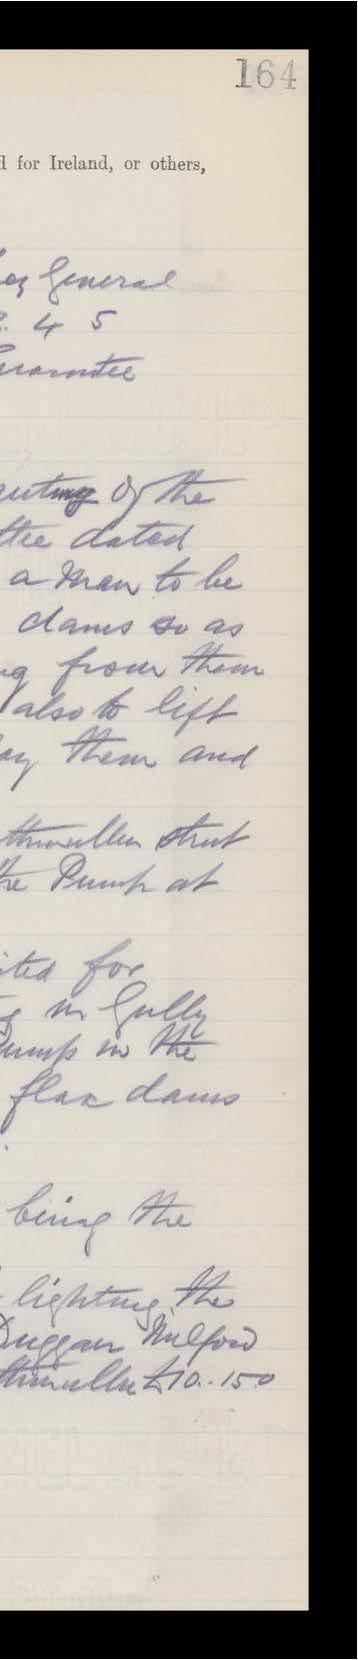 164
d for Ireland, or others,
General
4 5
Guarantee
of the
ttee dated
a man to be
dams so as
ng from them
also to lift
them and
thmullen street
the Pump at
ited for
in Gully
Pump in the
flax dams
being the
lighting the
Duggan Milford
thmullen £10.15.0